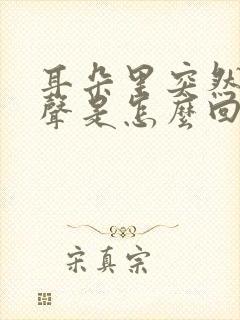 耳朵里突然
聲是怎麼回
宋真宗